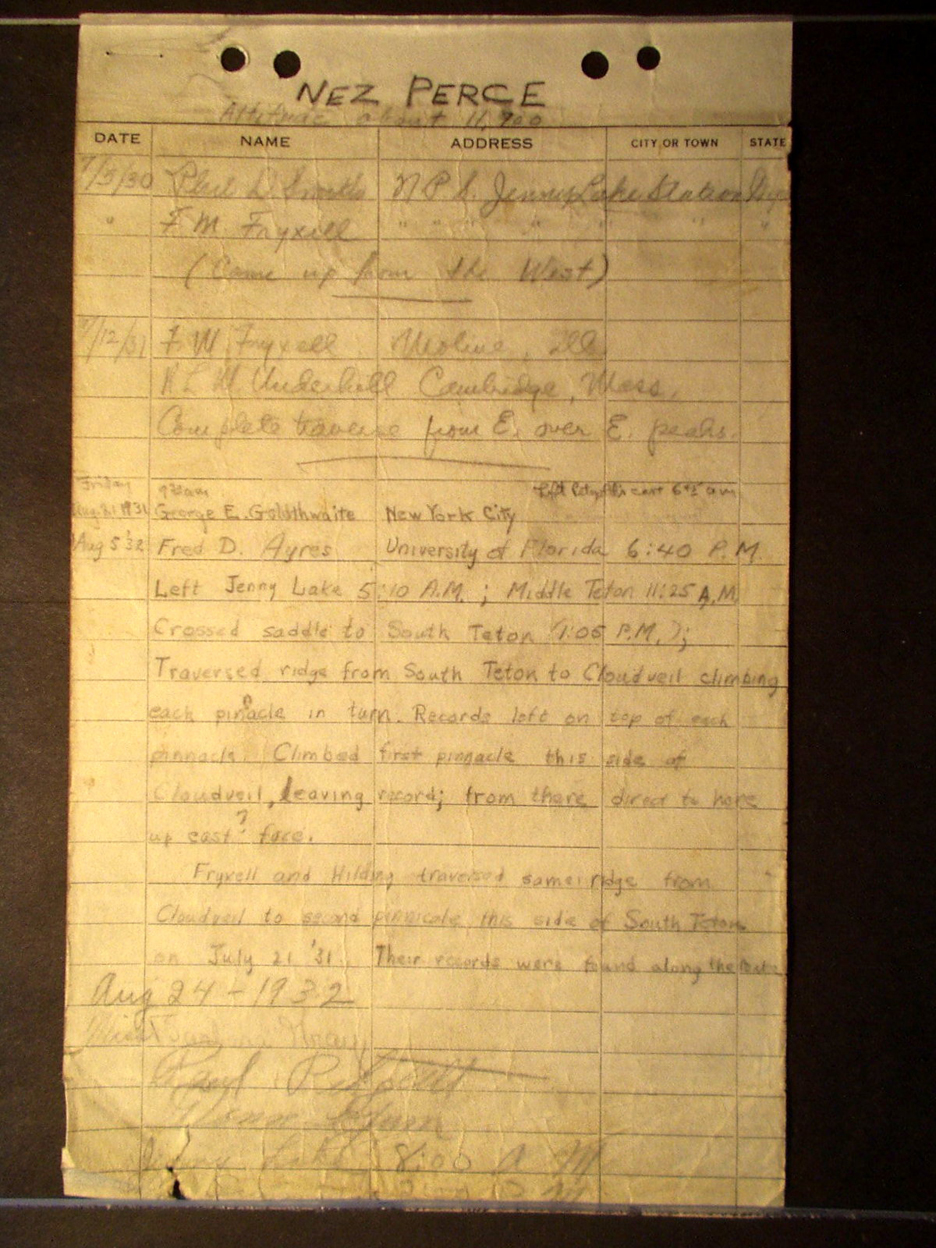 NEZ PERCE
Altitude about 11,900
DATE NAME ADDRESS CITY OR TOWN STATE
7/3/30 Phil D Smith N P S. Jenny Lake Station Wyo
" F M Fryxell " " " " " "
(Came up from the West)
7/12/31 F W Fryxell Moline, Ill.
R L M. Underhill Cambridge, Mass.
Complete traverse from E. over E. peaks.
Friday 930am Left 645 am
Aug. 21 1931 George E. Goldthwaite New York City
Aug 5 '32 Fred D. Ayres University of Florida 6:40 P.M.
Left Jenny Lake 5:10 A.M.; Middle Teton 11:25 A.M
Crossed saddle to South Teton (1:05 P.M.);
Traversed ridge from South Teton to Cloudveil climbing
each pinnacle in turn. Records left on top of each
pinnacle. Climbed first pinnacle this side of
Cloudveil, leaving record; from there direct to here
up east? face.
Fryxell and Hilding traversed same ridge from
Cloudveil to second pinnicale this side of South Teton
on July 21 '31. Their records were found along the
Aug 24 - 1932
Miss
Paul Petzoldt
Jenny Lake 8:00 A M
P M